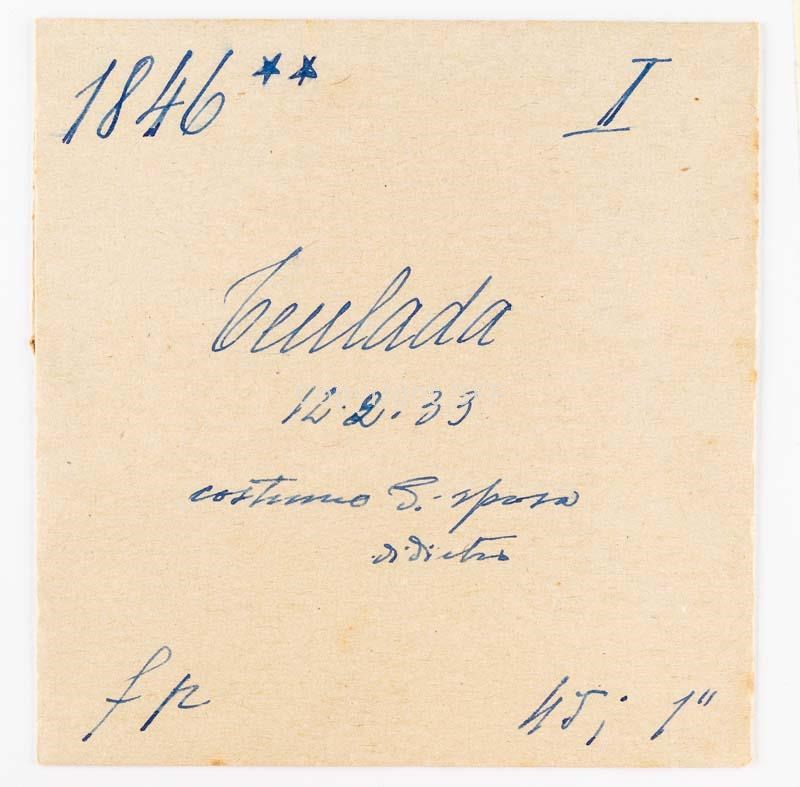 1846** I
Teulada
12.2.33
costume S. sposa
di dietro
f p
45; 1"